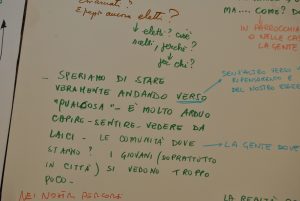 E poi ancora eletti?
→ eletti? cioè
scelti, perché?
→ per chi?
MA.... COME? D
IN PARROCCHIA
O NELLE CAS
LA GENTE
- SPERIAMO DI STARE
VERAMENTE ANDANDO VERSO
"QUALCOSA" - È MOLTO ARDUO
CAPIRE - SENTIRE - VEDERE DA
LAICI - LE COMUNITÀ DOVE
STANNO? I GIOVANI (SOPRATTUTTO
IN CITTÀ) SI VEDONO TROPPO
POCO -
SENZ'ALTRO VERSO
RIPENSAMENTO E
DEL NOSTRO ESSERE
LA GENTE DOVE
NEI NOSTRI PERCORSI
LA REALTÀ